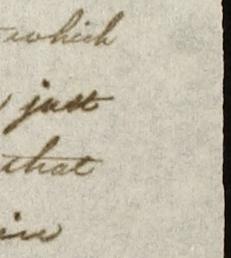 which
just
that